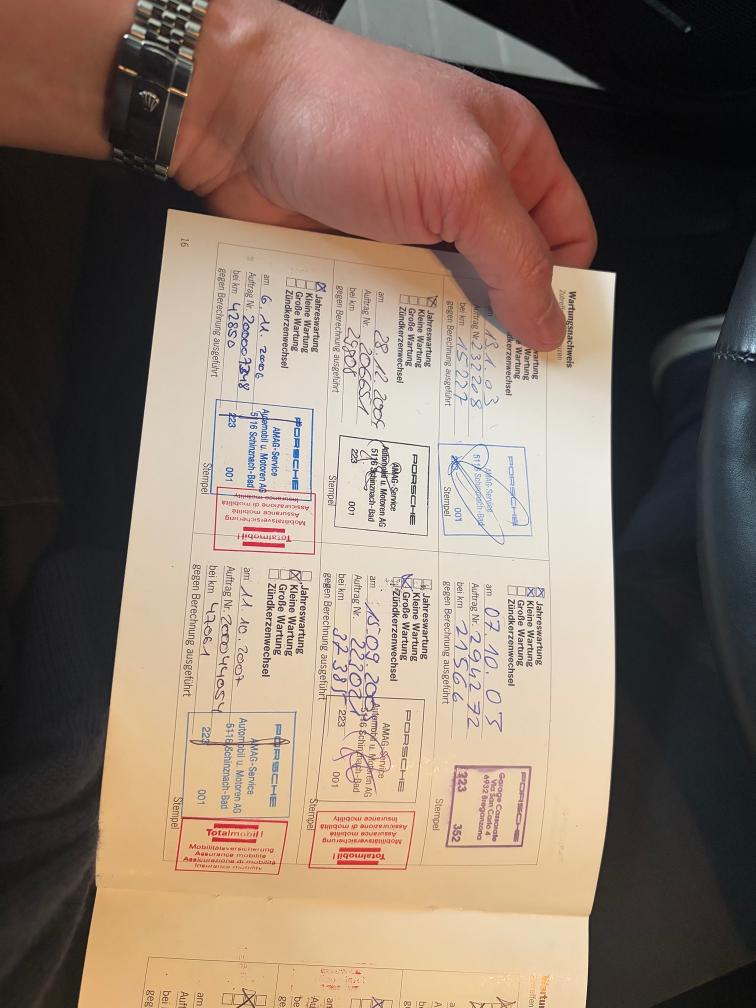 Wartungsnachweis
Zündkerzenwechsel
bei km 15227
gegen Berechnung ausgeführt
PORSCHE
AMAG-Service
5116 Schinznach-Bad
001
Stempel
Jahreswartung
Kleine Wartung
Große Wartung
Zündkerzenwechsel
am 07.10.03
Auftrag Nr. 294272
bei km 21566
gegen Berechnung ausgeführt
PORSCHE
Garage Cassarate
Via San Carlo 4
6932 Breganzona
223 352
Stempel
Jahreswartung
Kleine Wartung
Große Wartung
Zündkerzenwechsel
am 28.12.2004
Auftrag Nr. 206651
bei km
gegen Berechnung ausgeführt
PORSCHE
AMAG-Service
Automobil u. Motoren AG
5116 Schinznach-Bad
223 001
Stempel
Jahreswartung
Kleine Wartung
Große Wartung
Zündkerzenwechsel
am 15.09.
Auftrag Nr.
bei km
gegen Berechnung ausgeführt
PORSCHE
AMAG-Service
Automobil u. Motoren AG
5116 Schinznach-Bad
223 001
Stempel
Totalmobil!
Mobilitätsversicherung
Assurance mobilité
Assicurazione di mobilità
Insurance mobility
Jahreswartung
Kleine Wartung
Große Wartung
Zündkerzenwechsel
am 6.11.2006
Auftrag Nr.
bei km 42850
gegen Berechnung ausgeführt
PORSCHE
AMAG-Service
Automobil u. Motoren AG
5116 Schinznach-Bad
223 001
Stempel
Totalmobil!
Mobilitätsversicherung
Assurance mobilité
Assicurazione di mobilità
Insurance mobility
Jahreswartung
Kleine Wartung
Große Wartung
Zündkerzenwechsel
am 11.10.2007
Auftrag Nr. 200044054
bei km 47061
gegen Berechnung ausgeführt
PORSCHE
AMAG-Service
Automobil u. Motoren AG
5116 Schinznach-Bad
223 001
Stempel
Totalmobil!
Mobilitätsversicherung
Assurance mobilité
Assicurazione di mobilità
Insurance mobility
16